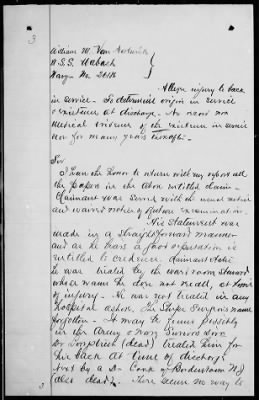 3
William M. Van
U.S.S. Wabash
Navy No
Alleges injury to back
in service - To determine origin in service
& existence at discharge. No record nor
Medical evidence of the existence in service
nor for many years thereafter
Sir
I have the honor to return my report all
the papers in the above entitled claim -
Claimant was served with the usual notice
and waived notice of further examination.
His statement was
made in a straightforward manner
and as he bears a good reputation is
entitled to credence. Claimant states
he was treated by the ward room Steward
whose name he does not recall, at time
of injury - He was not treated in any
hospital ashore. The Ships Surgeons name
forgotten - It may be found possibly
in the Army & Navy Survivors
Dr (dead) treated him for
his back at time of discharge
first by a Dr. Cook of Bordentown NJ
(also dead). There seems no way to